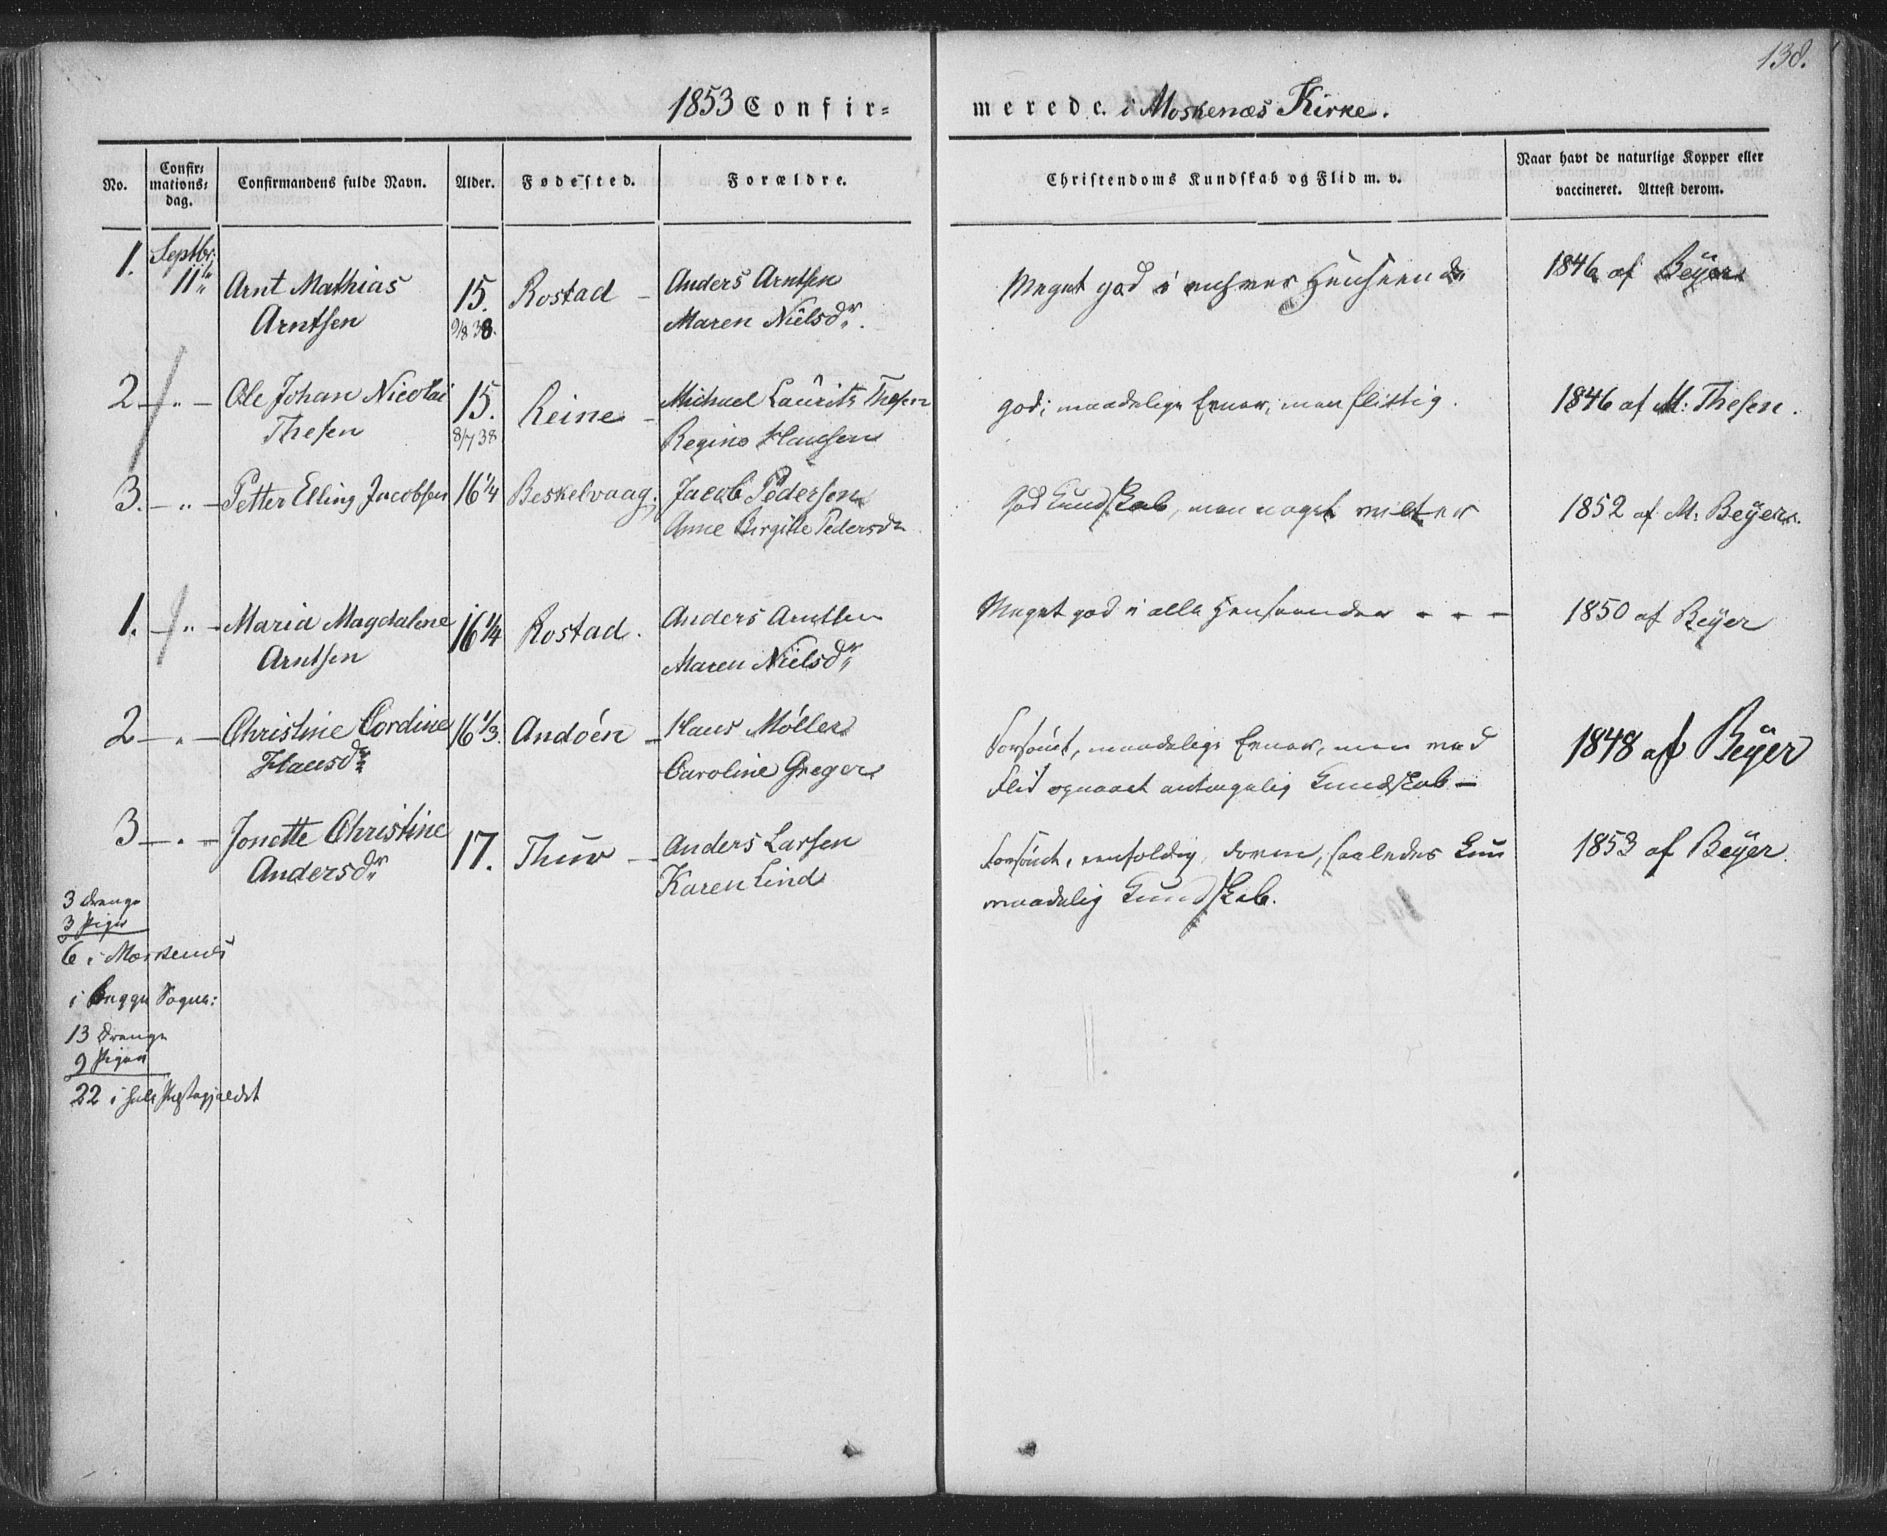 138.
1853 Confir=
merede. i Moskenæs Kirke.
No.
Confir=
mations=
dag.
Confirmandens fulde Navn.
Alder.
Fødested.
Forældre.
Christendoms Kundskab og Flid m. v.
Naar havt de naturlige Kopper eller
vaccineret. Attest derom.
1. Septbr: 11te Arnt Mathias Arntsen 15. 9/8 38. Rostad – Anders Arntsen Maren Nielsdr. Meget god i enhver Henseende 1846 af Beÿer
2 – " – Ole Johan Nicolai Thesen 15. 8/7 38 Reine – Michael Laurits Thesen Regine Hansen god; maadelige Evner, men flittig. 1846 af M: Thesen.
3. – " – Petter Elling Jacobsen 16 1/4 Beskelvaag. Jacob Pedersen Anne Birgitte Pedersdr God Kundskab, men noget 1852 af M: Beÿer.
1. – " – Maria Magdalene Arntsen 16 1/4 Rostad. Anders Arntsen Maren Nielsdr Meget god i alle Henseender – – – 1850 af Beÿer
2 – " – Christine Cordine Hansdr 16 1/3. Andöen – Hans Möller Caroline Greger Forsömt, maadelige Evner, men ved
Flid opnaaet antagelig Kundskab – 1848 af Beÿer
3 – " – Jonette Christine Andersdr 17. Thuv – Anders Larsen Karen Lind Forsömt, eenfoldig, doven, saaledes kun
maadelig Kundskab. 1853 af Beÿer.
3 Drenge
3 Piger
6 i Moskenæs
i begge Sogne:
13 Drenge
9 Piger
22 i hele Præstegjældet